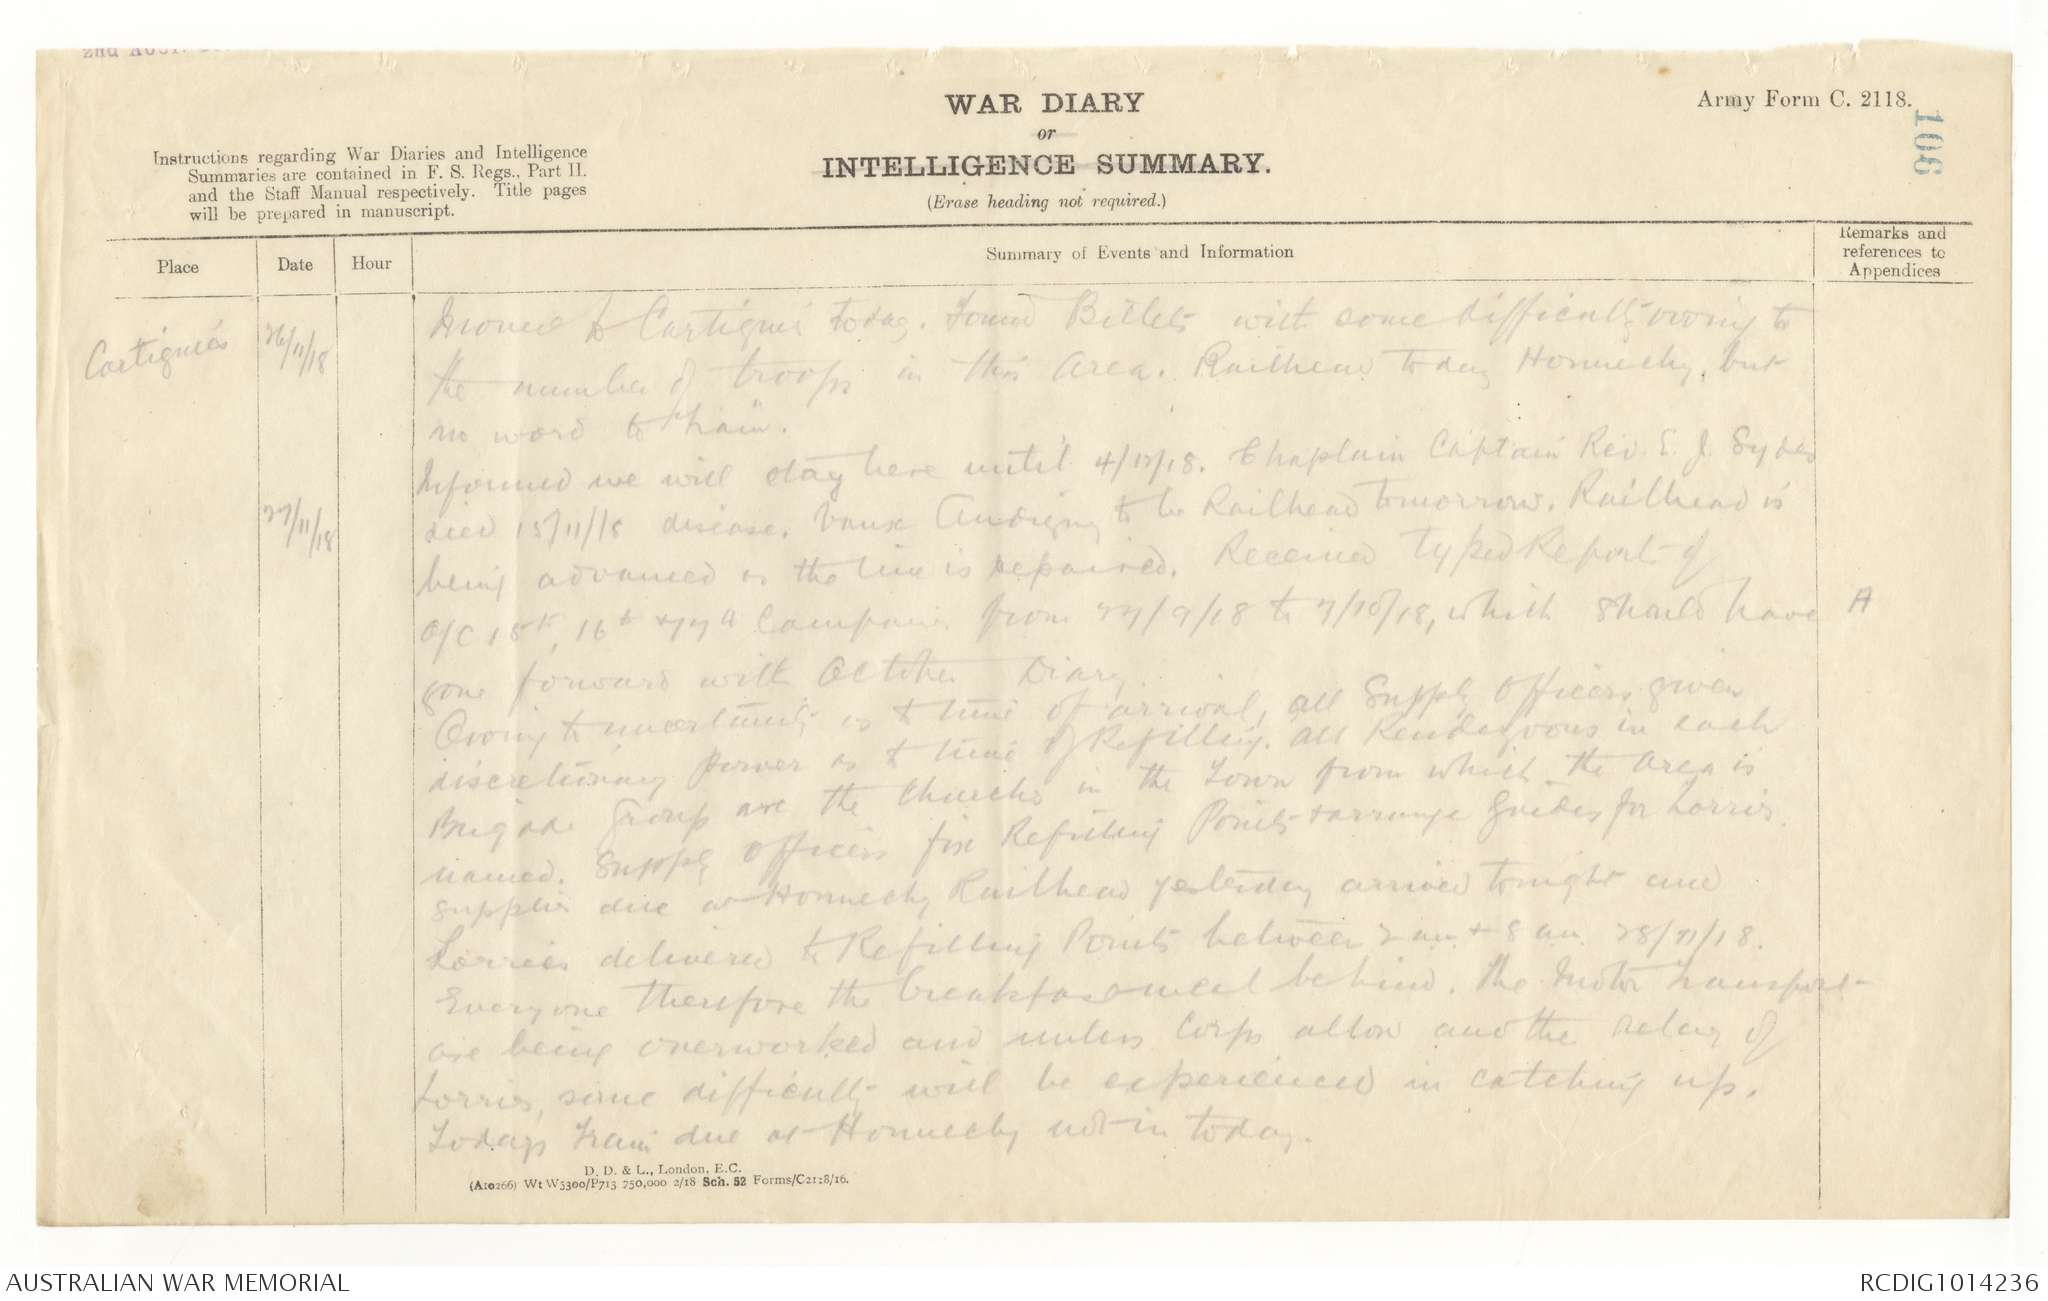 2nd Aust.
WAR DIARY
or
INTELLIGENCE SUMMARY.
(Erase heading not required.)
Army Form C. 2118.
106
Instructions regarding War Diaries and Intelligence
Summaries are contained in F. S. Regs., Part II.
and the Staff Manual respectively. Title pages
will be prepared in manuscript.
Place
Date
Hour
Summary of Events and Information
Remarks and
references to
Appendices
Cartignies
26/11/18
Moved to Cartignies today. Found Billets with some difficulty owing to
the number of troops in this area. Railhead today Honnechy, but
no word to train.
27/11/18
Informed we will stay here until 4/12/18. Chaplain Captain Rev. E. J. Sykes
died 15/11/18 disease. Vaux Andigny to be Railhead tomorrow. Railhead is
being advanced as the line is repaired. Received typed Report of
O/C 15th, 16th & 17th Companies from 27/9/18 to 7/10/18, which should have
A
gone forward with October Diary.
Owing to uncertainty as to time of arrival, all Supply Officers given
discretionary power as to time of Refilling. All Rendezvous in each
Brigade Group are the Churches in the Town from which the area is
named. Supply Officers fix Refilling Points & arrange Guides for Lorries.
Supplies due at Honnechy Railhead yesterday arrived tonight and
Lorries delivered to Refilling Points between 2 am. & 8 am. 28/11/18.
Everyone therefore the breakfast meal behind. The Motor Transport
are being overworked and unless Corps allow another relay of
Lorries, some difficulty will be experienced in catching up.
Todays Train due at Honnechy not in today.
D. D. & L., London, E.C.
(A10266) Wt W5300/P713 750,000 2/18 Sch. 52 Forms/C2118/16.
AUSTRALIAN WAR MEMORIAL
RCDIG1014236